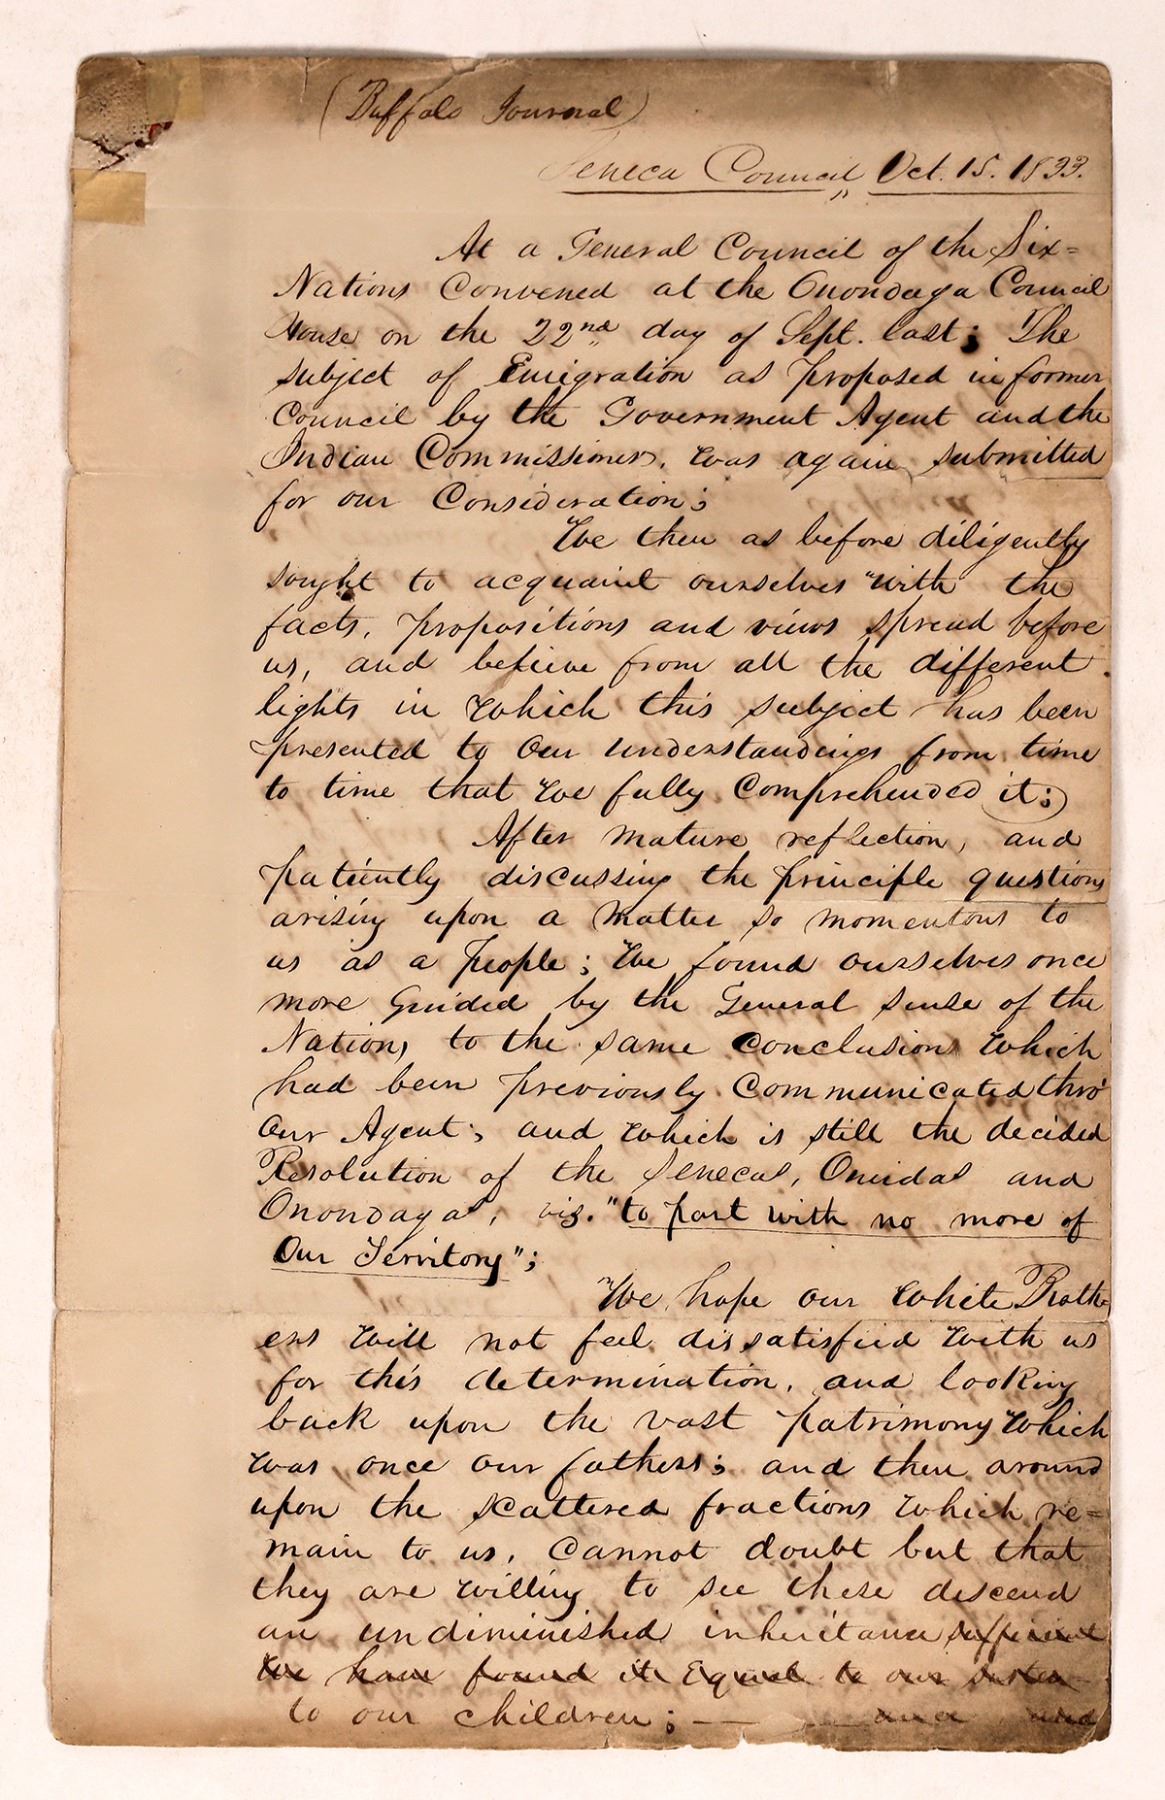 (Buffalo Journal)
Seneca Council, Oct. 15. 1833.
At a General Council of the Six=
Nations Convened at the Onondaga Council
House on the 22nd day of Sept. last; The
subject of Emigration as proposed in former
Council by the Government Agent and the
Indian Commissioner, was again submitted
for our Consideration;
We then as before diligently
sought to acquaint ourselves with the
facts, propositions and views spread before
us, and believe from all the different
lights in which this subject has been
presented to our understandings from time
to time that we fully Comprehended it;)
After mature reflection, and
patiently discussing the principle questions
arising upon a matter so momentous to
us as a people; We found ourselves once
more Guided by the General sense of the
Nations to the same conclusions which
had been previously Communicated thro'
Our Agent; and which is still the decided
Resolution of the Senecas, Oneidas and
Onondagas, viz. "to part with no more of
Our Territory";
We hope our White Broth=
ers will not feel dissatisfied with us
for this determination, and looking
back upon the vast patrimony which
was once our fathers; and then around
upon the scattered fractions which re=
main to us, Cannot doubt but that
they are willing to see these descend
an undiminished inheritance sufficient
We have found it Equal to our susten
to our children; — ance and